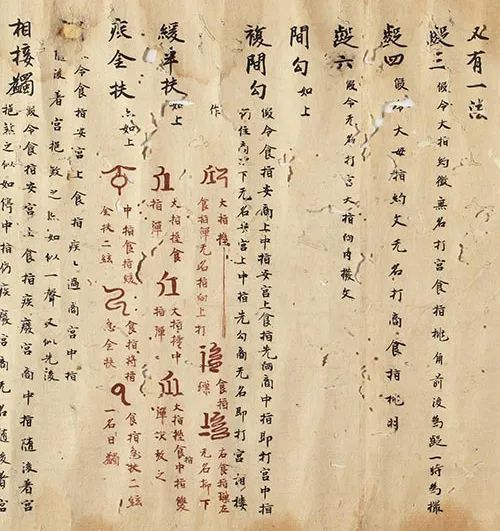 又有一法
齪三 假令大指約徵無名打宮食指挑角前後為齪一時為撮
齪四 大母指約文无名打商食指挑羽
齪六 假令无名打宮大指向内撥文
間勾 如上
複間勾 假令食指安商上中指安宮上食指先向商中指即打宮中指
下无名安宮上中指先勾商无名即打宮
作 大指擡
食指彈无名指向上打 食指
无名
緩半扶 如上 大指擡食
指彈 大指擡中
指彈 大指擡食中指雙
彈次放之
疾全扶 亦如上 中指食指緩
全扶二絃 食指將指
急全扶 食指急扶二絃
一名曰蠲
令食指安宮上食指疾過商宮中指
隨後着宮挹敦之亦如似一聲又似先後
相接蠲 假令食指安宮上食指疾廢宮商中指隨後着宮
挹敦之似如停中指仍疾廢宮商无名隨後着宮